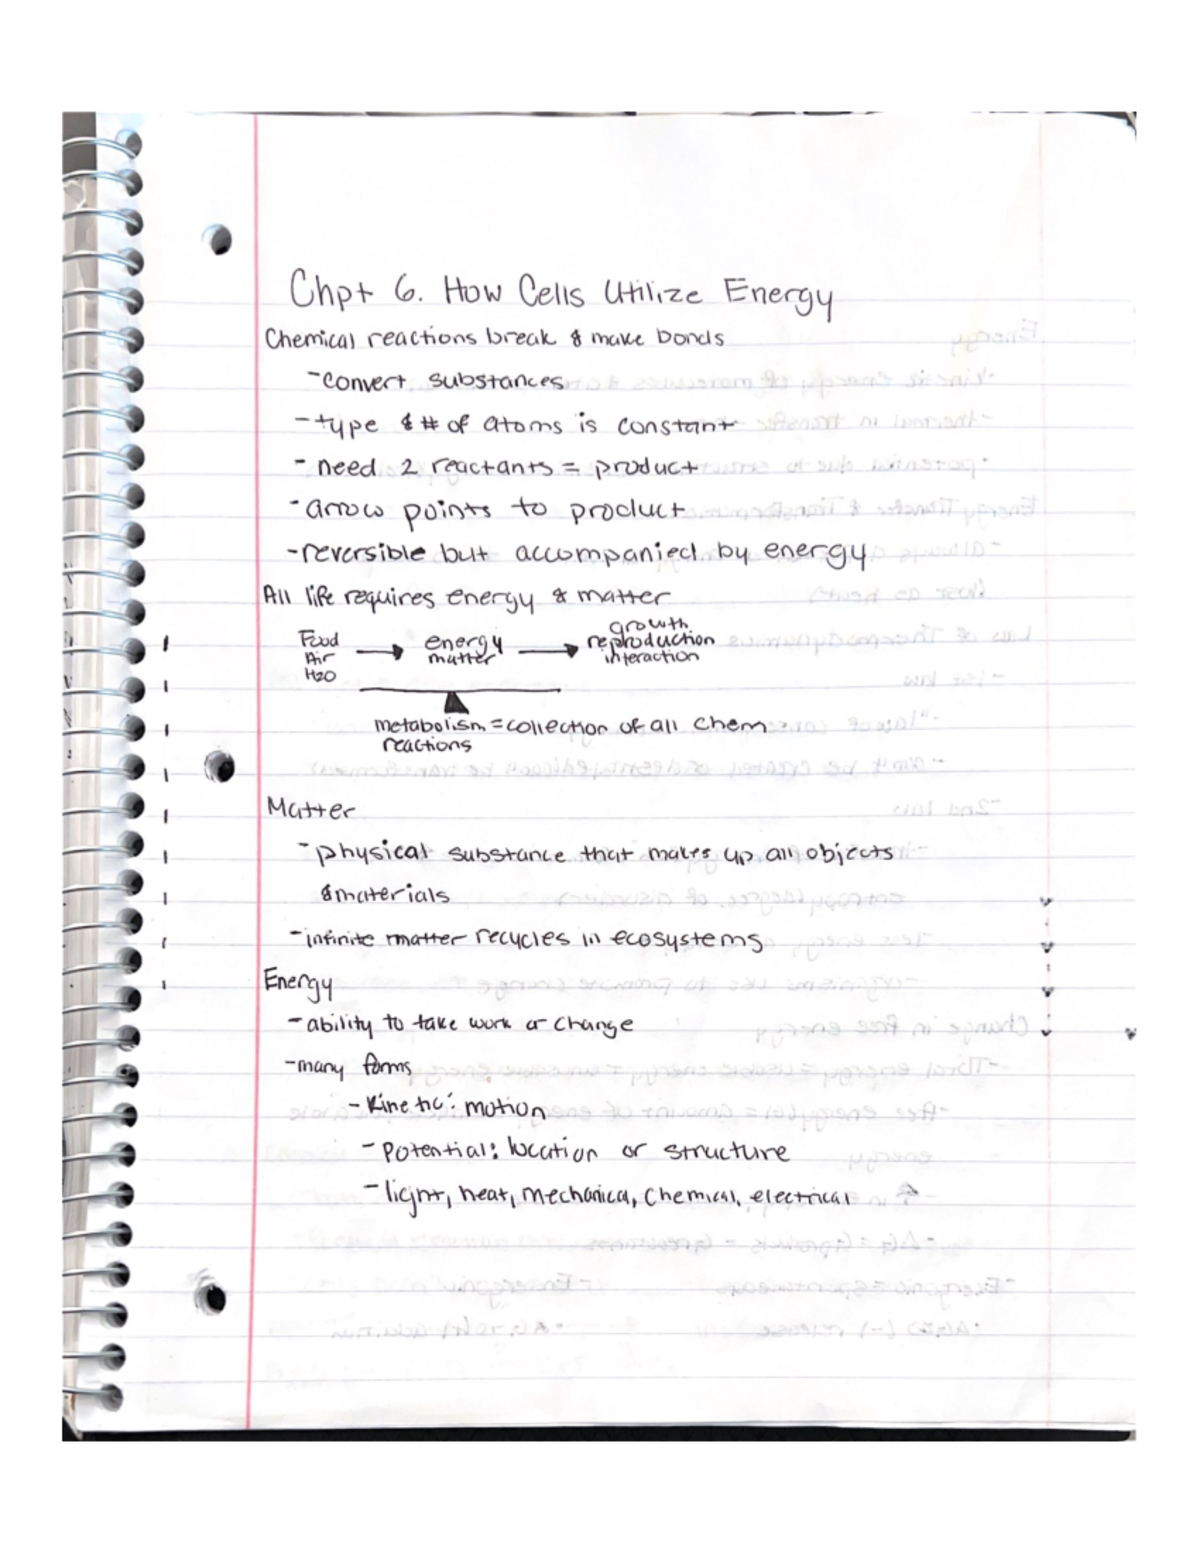 Chpt 6. How Cells Utilize Energy
Chemical reactions break & make bonds
-convert substances
-type & # of atoms is constant
-need 2 reactants = product
-arrow points to product
-reversible but accompanied by energy
All life requires energy & matter
Food
Air
H2O
energy
matter
growth
reproduction
interaction
metabolism = collection of all chem
reactions
Matter
-physical substance that makes up all objects
& materials
-infinite matter recycles in ecosystems
Energy
-ability to take work or change
-many forms
-Kinetic: motion
-Potential: location or structure
-light, heat, mechanica, chemical, electrical